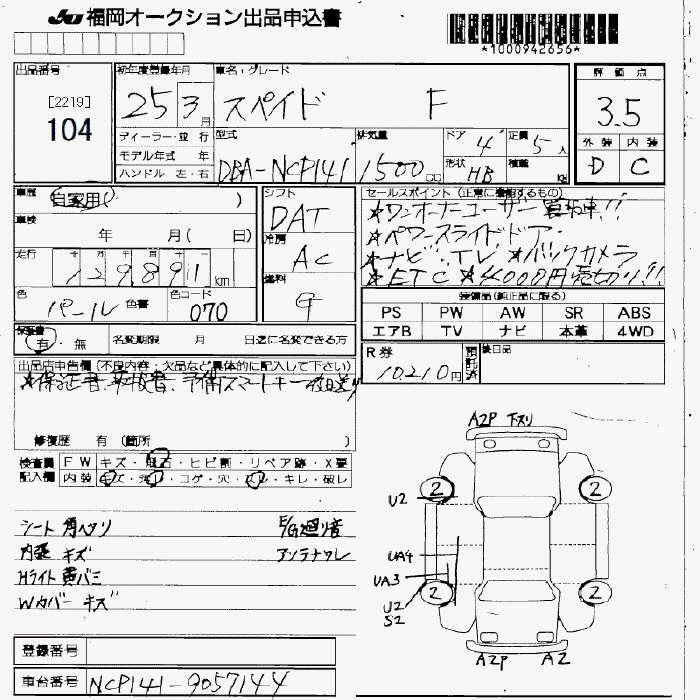 JU 福岡オークション出品申込書
*1000942656*
出品番号
[2219]
104
初年度登録年月
25 3 月
車名・グレード
スペイド F
評価点
3.5
外装 内装
D C
ディーラー・並行
モデル年式 年
ハンドル 左・右
型式
DBA-NCP141
排気量
1500 CC
ドア 4
形状 HB
定員 5 人
積載 KG
車歴 自家用( )
車検 年 月( 日)
走行
129891 km
色 パール 色番
色コード 070
シフト
DAT
冷房
AC
燃料
G
セールスポイント (正常に機能するもの)
★ワンオーナーユーザー買取車!!
★パワースライドドア・
★ナビ・TV ★バックカメラ
★ETC ★4000円売切り!!!
装備品(純正品に限る)
PS PW AW SR ABS
エアB TV ナビ 本革 4WD
保証書
有・無
名変期限 月 日迄に名変できる方
R券
10210円
預託済
後日品
出品店申告欄 (不良内容・欠品など具体的に記入して下さい)
★保証書、取扱書、予備スマートキー後日送り
修復歴 有 (箇所 )
検査員 FW キズ・飛石・ヒビ割・リペア跡・X要
記入欄 内装 キズ・汚レ・コゲ・穴・スレ・キレ・破レ
シート角ヘタリ
E/G廻り音
内張 キズ
アンテナワレ
Hライト黄バミ
Wカバー キズ
A2P 下スリ
2 2
U2
UA4
UA3
2 2
U2
S2
A2P A2
登録番号
車台番号 NCP141-9057144